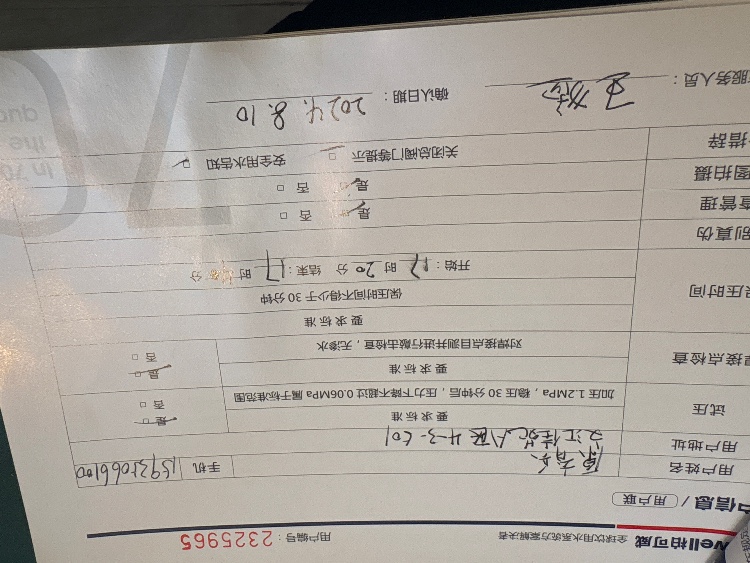 well柏可威 全球饮用水系统方案解决者 用户编号：2325965
户信息 / 用户联
用户姓名 手机
用户地址 A区 4-3-601
试压 要求标准 是 否
加压1.2MPa，稳压30分钟后，压力下降不超过0.06MPa属于标准范围
焊接点检查 要求标准 是 否
对焊接点目测并进行敲击检查，无渗水
保压时间 要求标准
保压时间不得少于30分钟
开始：17时20分 结束：17时 分
别真伪
查管理 是 否
图拍摄 是 否
措辞 关闭总阀门等提示 安全用水告知
服务人员： 确认日期：2024.8.10
In 20
the
quo